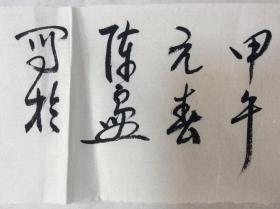 甲午
元春
陈盈
写於